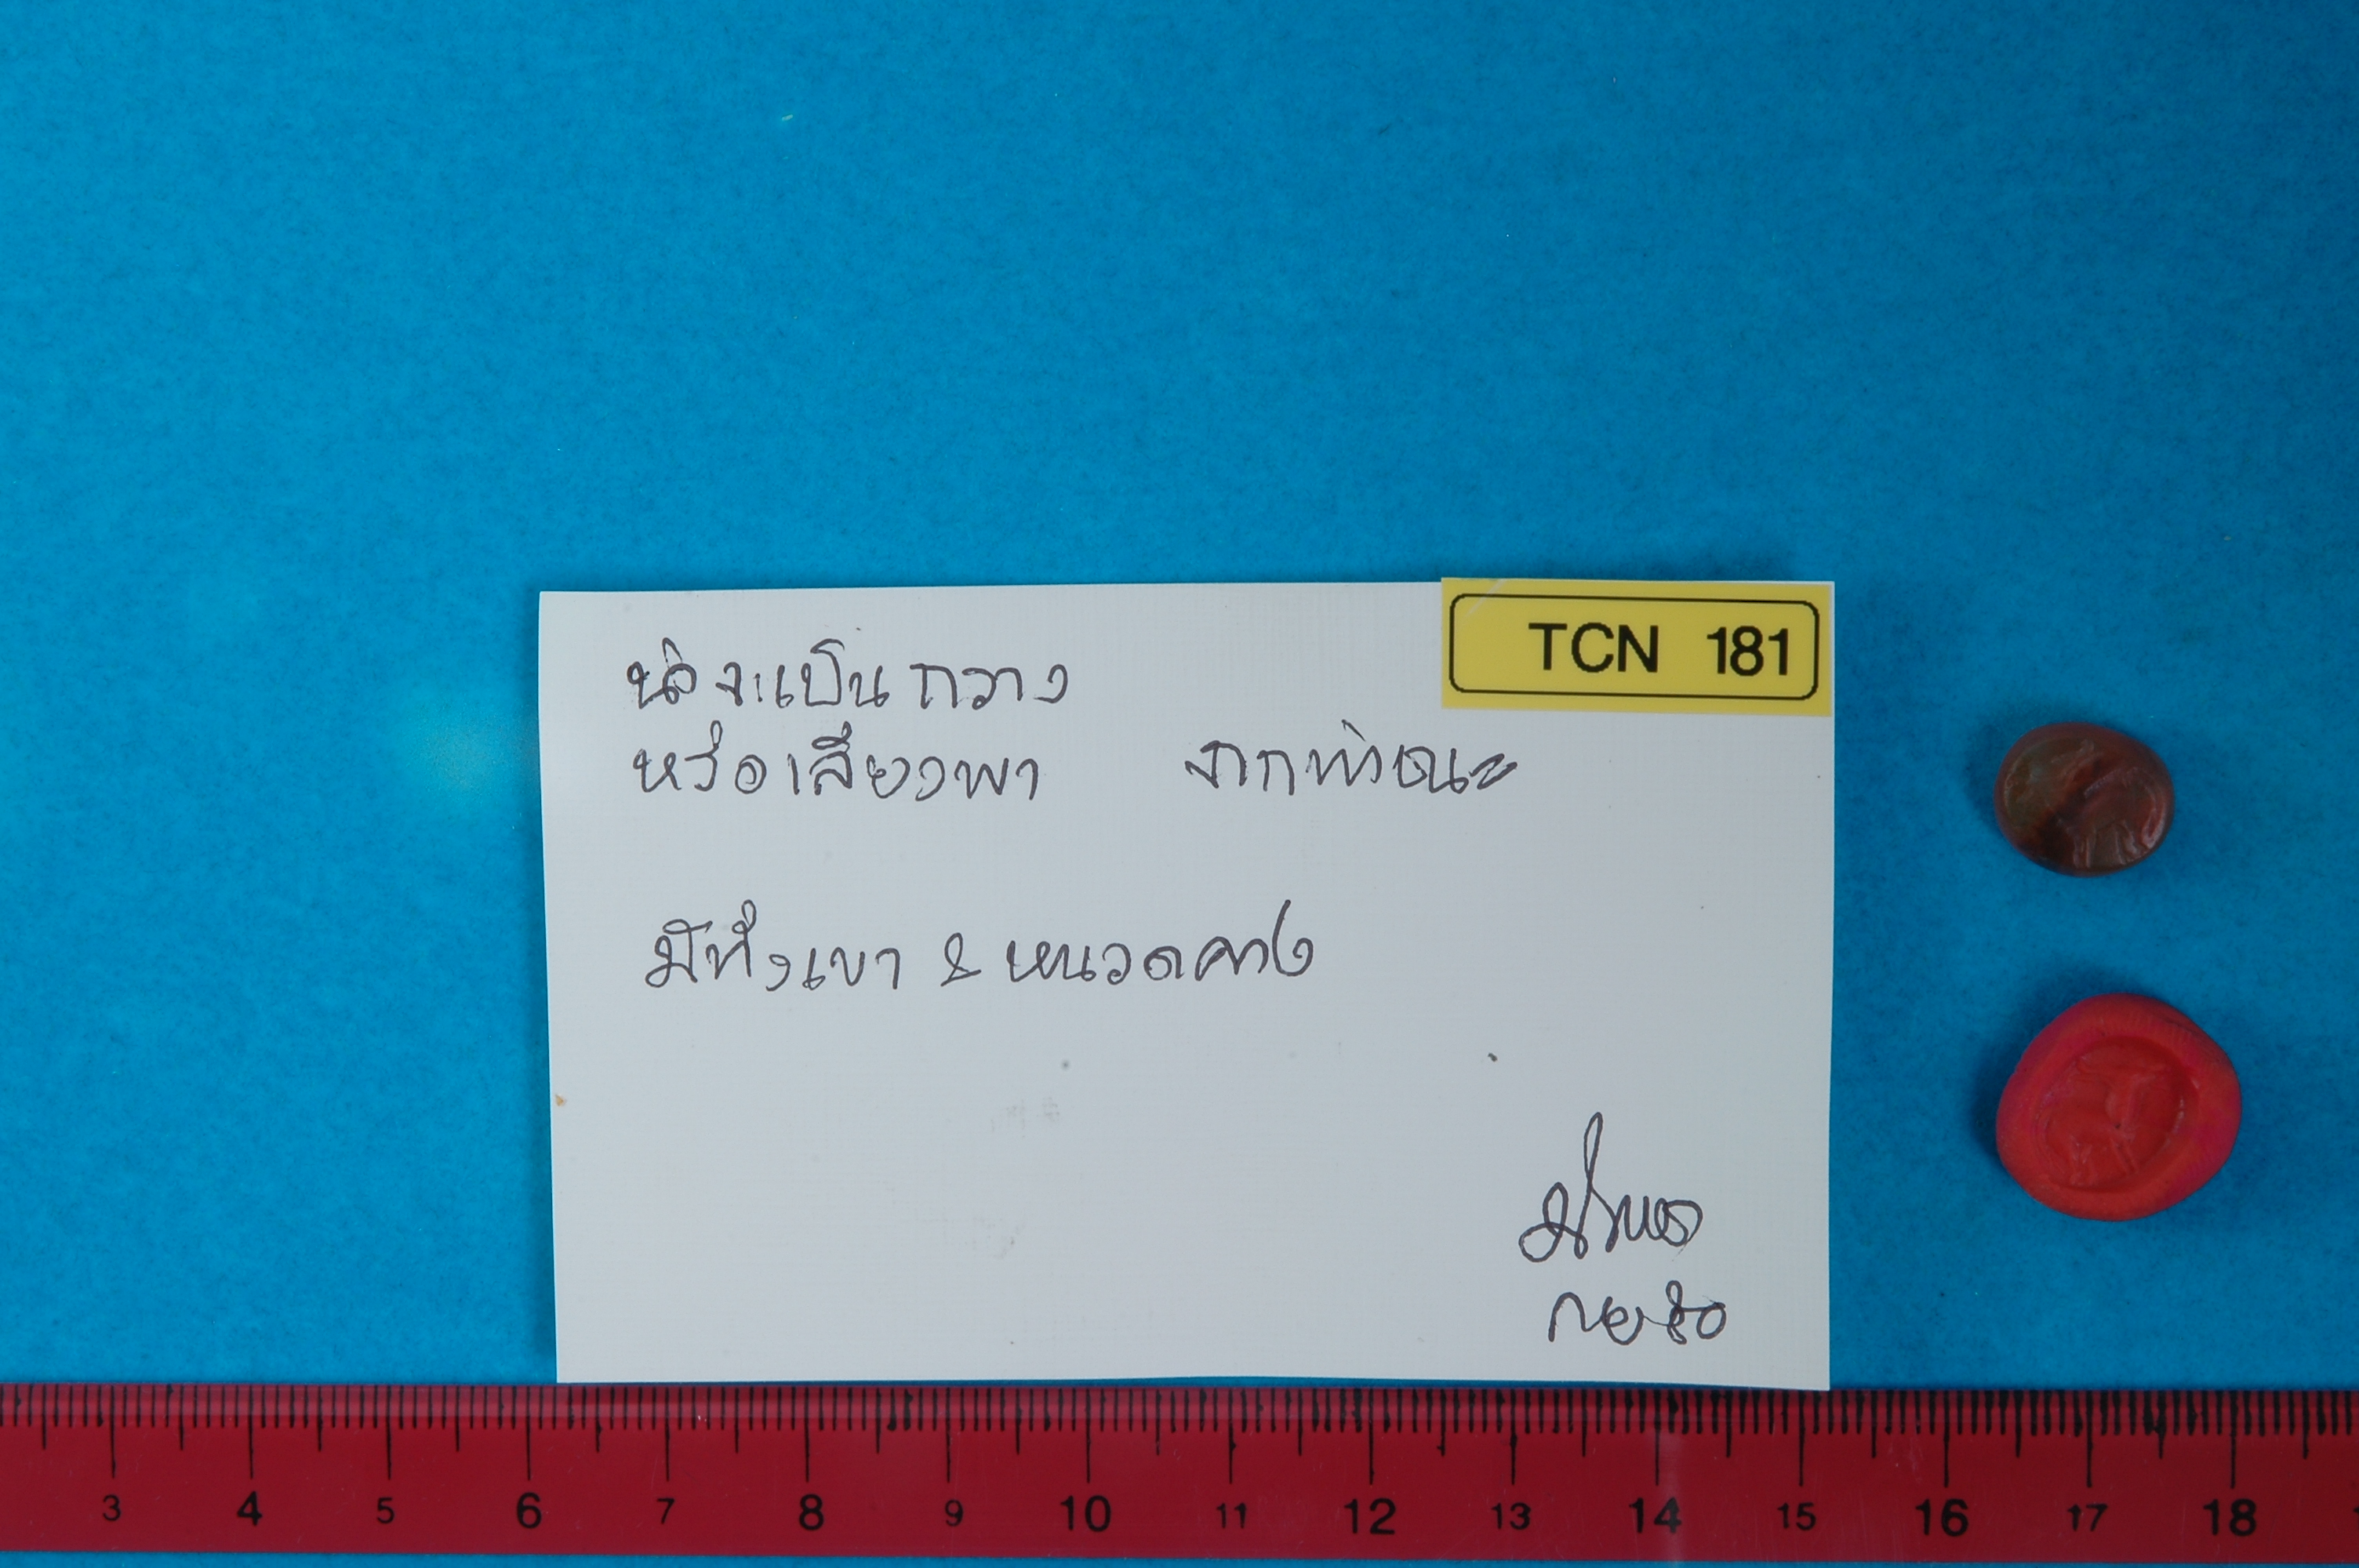 TCN 181
น่าจะเป็นกวาง
หรือเลียงผา จากท่าชนะ
มีทั้งเขา & หนวดคาง
3 4 5 6 7 8 9 10 11 12 13 14 15 16 17 18